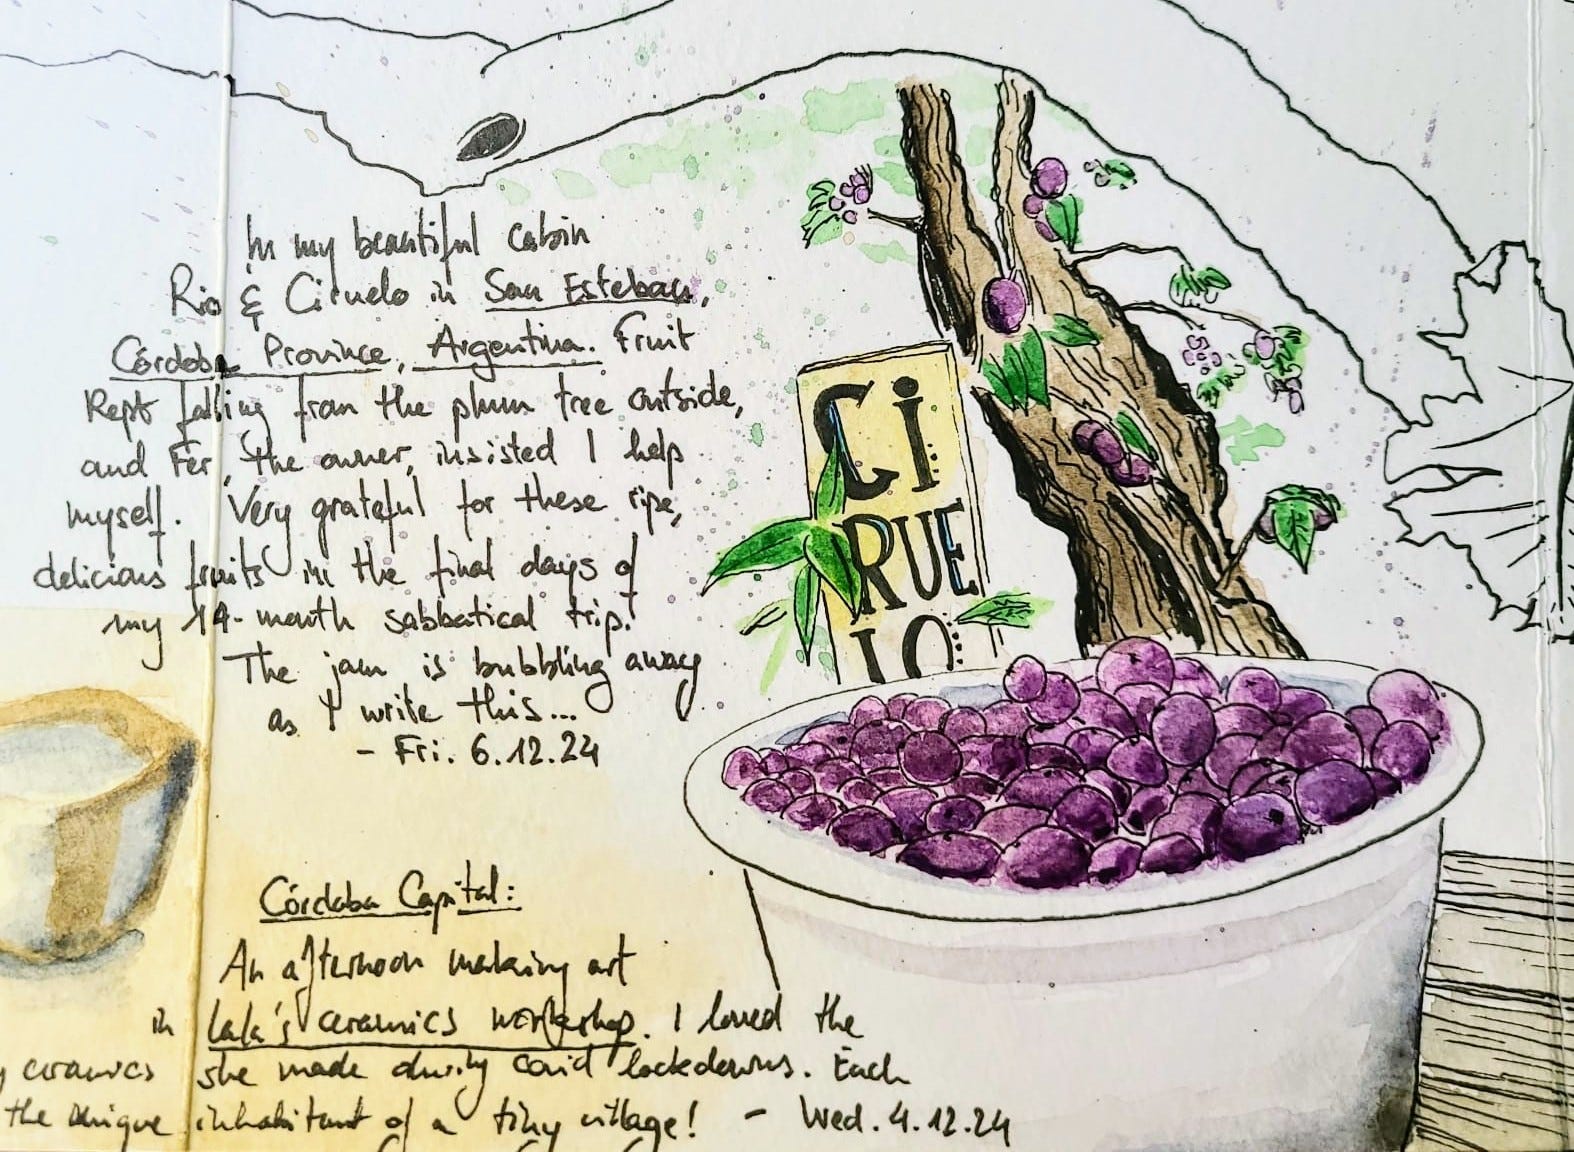 In my beautiful cabin
Rio & Ciruelo in San Esteban,
Córdoba Province, Argentina. Fruit
kept falling from the plum tree outside,
and Fer, the owner, insisted I help
myself. Very grateful for these ripe,
delicious fruits in the final days of
my 14-month sabbatical trip.
The jam is bubbling away
as I write this...
- Fri. 6.12.24
Ci
RUE
LO
Córdoba Capital:
An afternoon making art
in Lala's ceramics workshop. I loved the
ceramics she made during covid lockdowns. Each
the unique inhabitant of a tiny village! - Wed. 4.12.24